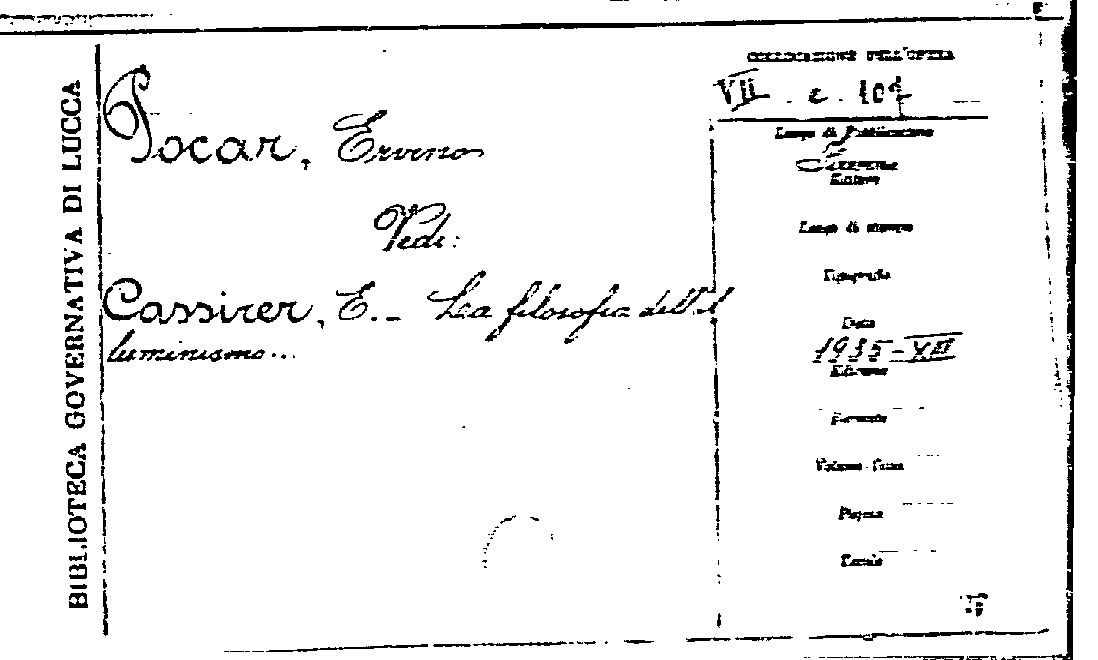 BIBLIOTECA GOVERNATIVA DI LUCCA
Pocar, Ervino
Vedi:
Cassirer, E. - La filosofia dell'il
luminismo...
COLLOCAZIONE DELL'OPERA
VII . c. 107
Luogo di Pubblicazione
Firenze
Editore
Luogo di stampa
Tipografia
Data
1935-XIII
Edizione
Formato
Volume
Pagine